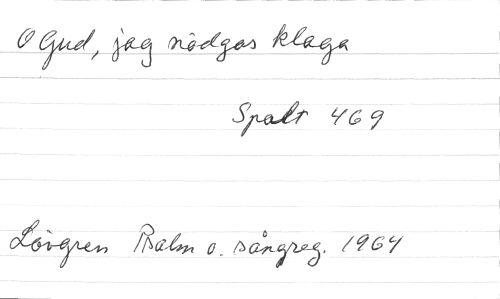 O Gud, jag nödgas klaga
Spalt 469
Lövgren Psalm o. sångreg. 1964